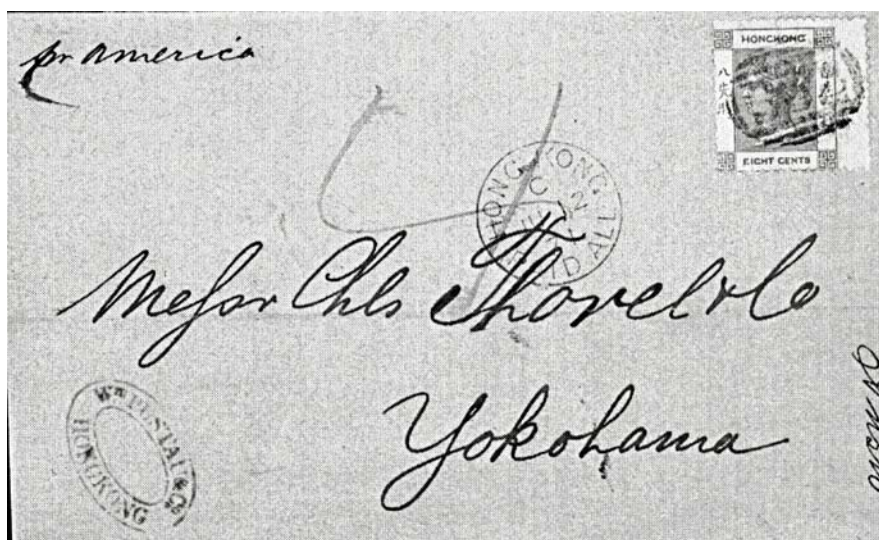 pr America
HONGKONG
八
EIGHT CENTS
4
HONG KONG
PAID ALL
Messr Chls Thorel & Co
Yokohama
Wm PUSTAU & Co
HONGKONG